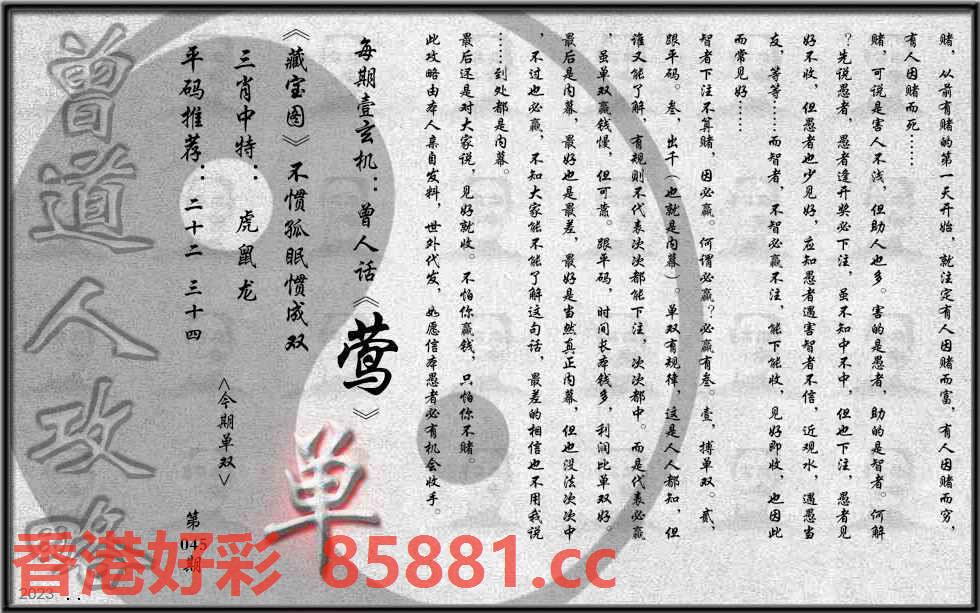 赌，从前有赌的第一天开始，就注定有人因赌而富，有人因赌而穷，
有人因赌而死……
赌，可说是害人不浅，但助人也多。害的是愚者，助的是智者。何解
？先说愚者，愚者逢开奖必下注，虽不知中不中，但也下注，愚者见
好不收，但愚者也少见好，应知愚者遇害智者不信，近观水，遇愚当
友，等等……而智者，不智必赢不注，能下能收，见好即收，也因此
而常见好……
智者下注不算赌，因必赢。何谓必赢？必赢有叁。壹，搏单双。贰，
跟平码。叁，出千（也就是内幕）。单双有规律，这是人人都知，但
谁又能了解，有规则不代表次次都能下注，次次都中。而是代表必赢
，虽单双赢钱慢，但可靠。跟平码，时间长本钱多，利润比单双好。
最后是内幕，最好也是最差，最好是当然真正内幕，但也没法次次中
，不过也必赢，不知大家能不能了解这句话，最差的相信也不用我说
……到处都是内幕。
最后还是对大家说，见好就收。不怕你赢钱，只怕你不赌。
此攻略由本人亲自发料，世外代发，如愿信本愚者必有机会收手。
每期壹玄机：曾人话《莺》
《藏宝图》不惯孤眠惯成双
三肖中特：虎鼠龙
平码推荐：二十二 三十四
<今期单双>
单
第
045
期
曾道人攻略
香港好彩 85881.cc
2023